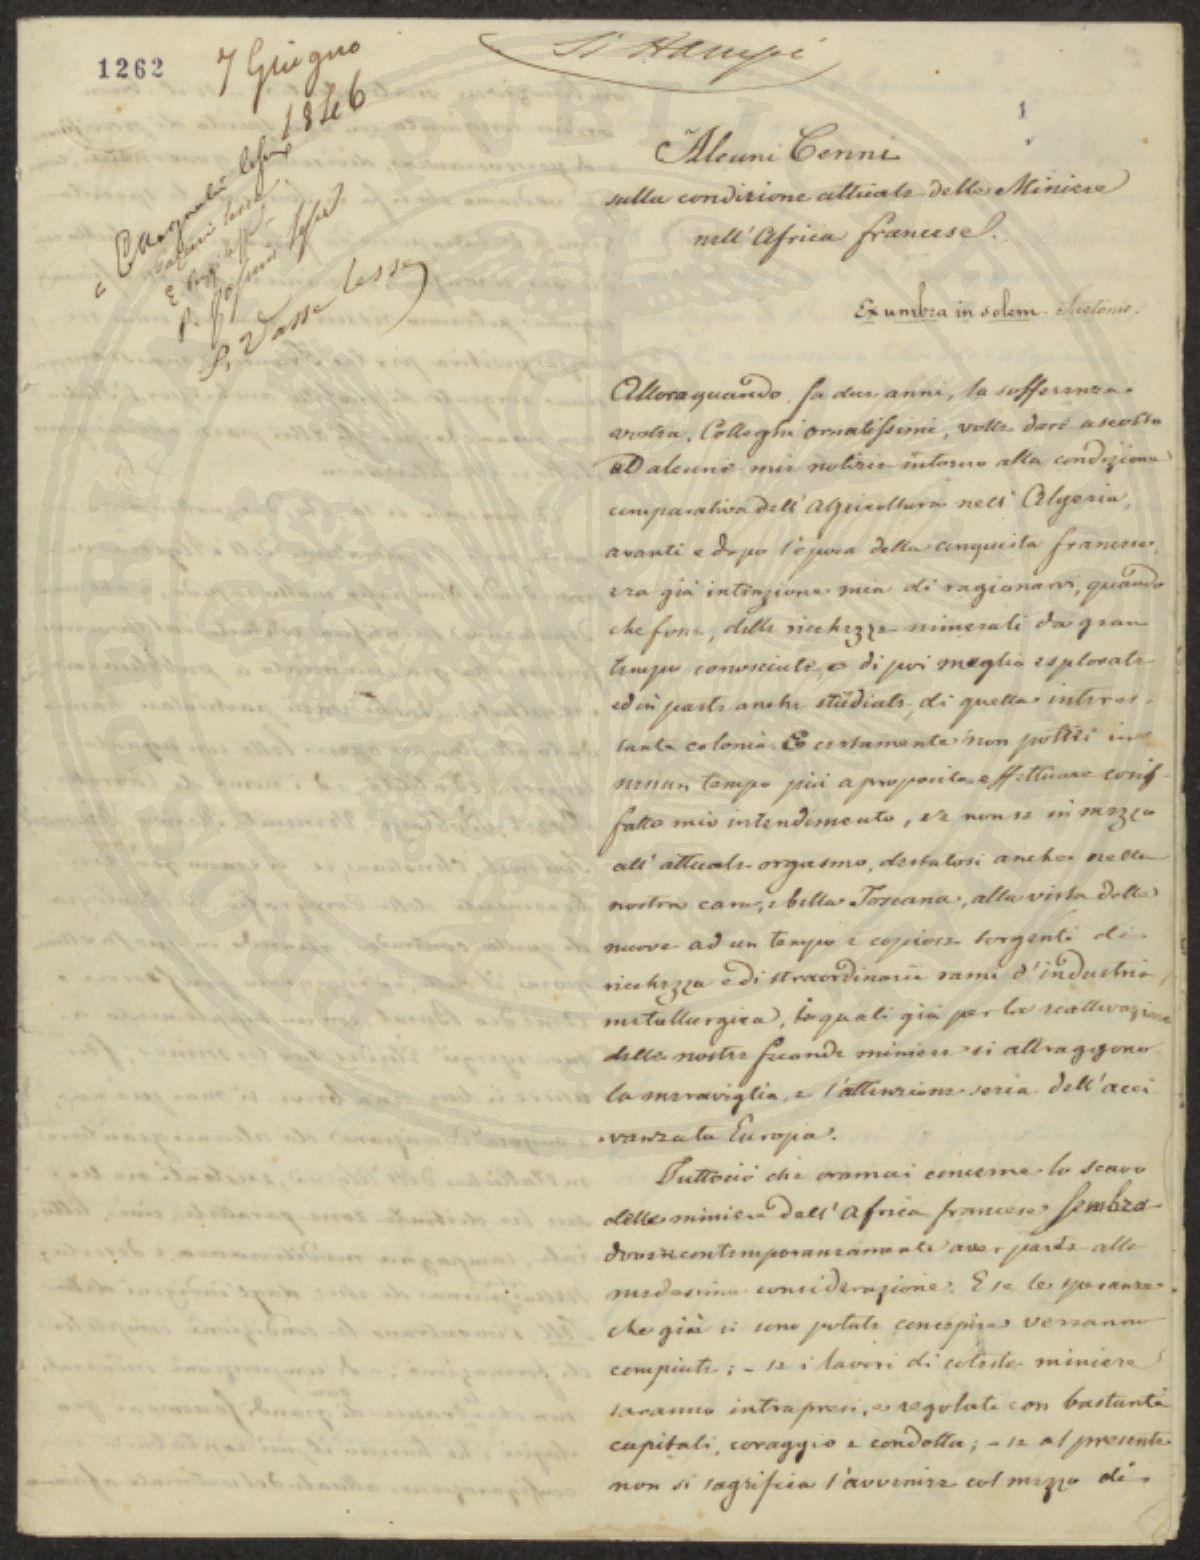 1262
7 Giugno
1846
Si stampi
1
Alcuni Cenni
sulla condizione attuale delle Miniere
nell'Affrica francese.
Ex umbra in solem. Suetonio.
Alloraquando, fa due anni, la sofferenza
vostra, Colleghi ornatissimi, volle dare ascolto
ad alcune mie notizie intorno alla condizione
comparativa dell'Agricoltura nell'Algeria,
avanti e dopo l'epoca della conquista francese,
era già intenzione mia di ragionarvi, quando
che fosse, delle ricchezze minerali da gran
tempo conosciute, e di poi meglio esplorate
ed in parte anche studiate, di quella interes-
sante colonia. E certamente non potrei in
nessun tempo più a proposito effettuare cosif-
fatto mio intendimento, se non se in mezzo
all'attuale orgasmo, destatosi anche nella
nostra cara, e bella Toscana, alla vista delle
nuove ad un tempo e copiose sorgenti di
ricchezza e di straordinarii rami d'industria
metallurgica, le quali già per la riattivazione
delle nostre feconde miniere si attraggono
la meraviglia, e l'attenzione seria dell'acci
vanzata Europa.
Tuttociò che oramai concerne lo scavo
delle miniere dell'Affrica francese sembra
dover contemporaneamente aver parte alla
medesima considerazione. E se le speranze
che già si sono potute concepire verranno
compiute; - se i lavori di coteste miniere
saranno intrapresi, e regolati con bastanti
capitali, coraggio e condotta; - se al presente
non si sagrifica l'avvenire col mezzo di